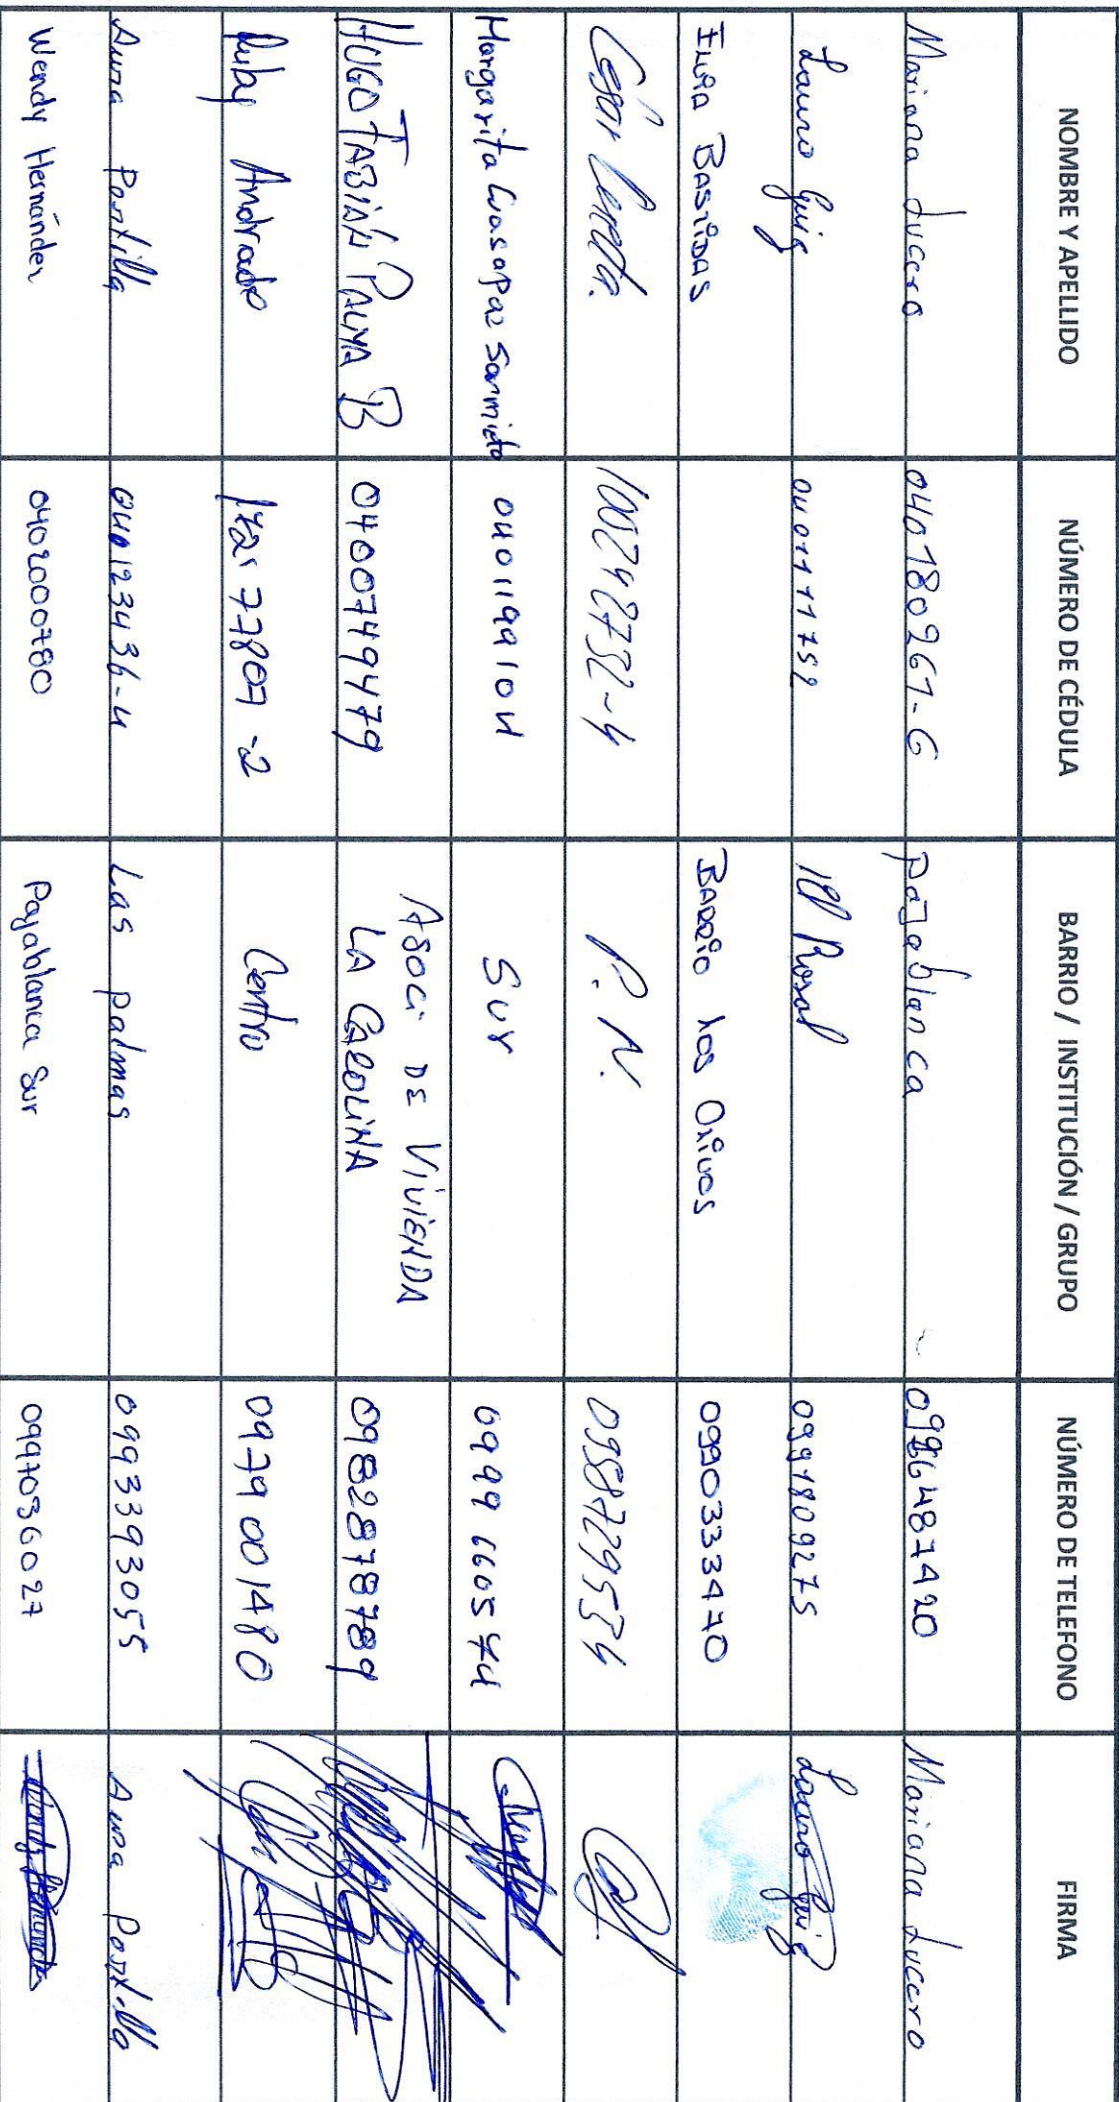 NOMBRE Y APELLIDO NÚMERO DE CÉDULA BARRIO / INSTITUCIÓN / GRUPO NÚMERO DE TELEFONO FIRMA
Mariana Lucero 040180261-6 pajablanca 0986487420 Mariana Lucero
Lauro Guiz 0401111759 El Rosal 0991809275 Lauro Guiz
BASTIDAS BARRIO Los Olivos 0990333470
César 100242752-4 P. N. 0988729534
Margarita Guasapaz Sarmieto 0401199104 Sur 0999660574
HUGO FABIÁN PALMA B 0400749479 ASOCI. DE VIVIENDA LA CAROLINA 0982878789
Ruby Andrade 172177807-2 Centro 0979001480
Aura Portilla 040123436-4 Las palmas 0993393055 Aura Portilla
Wendy Hernández 0402000780 Pajablanca Sur 0997036027